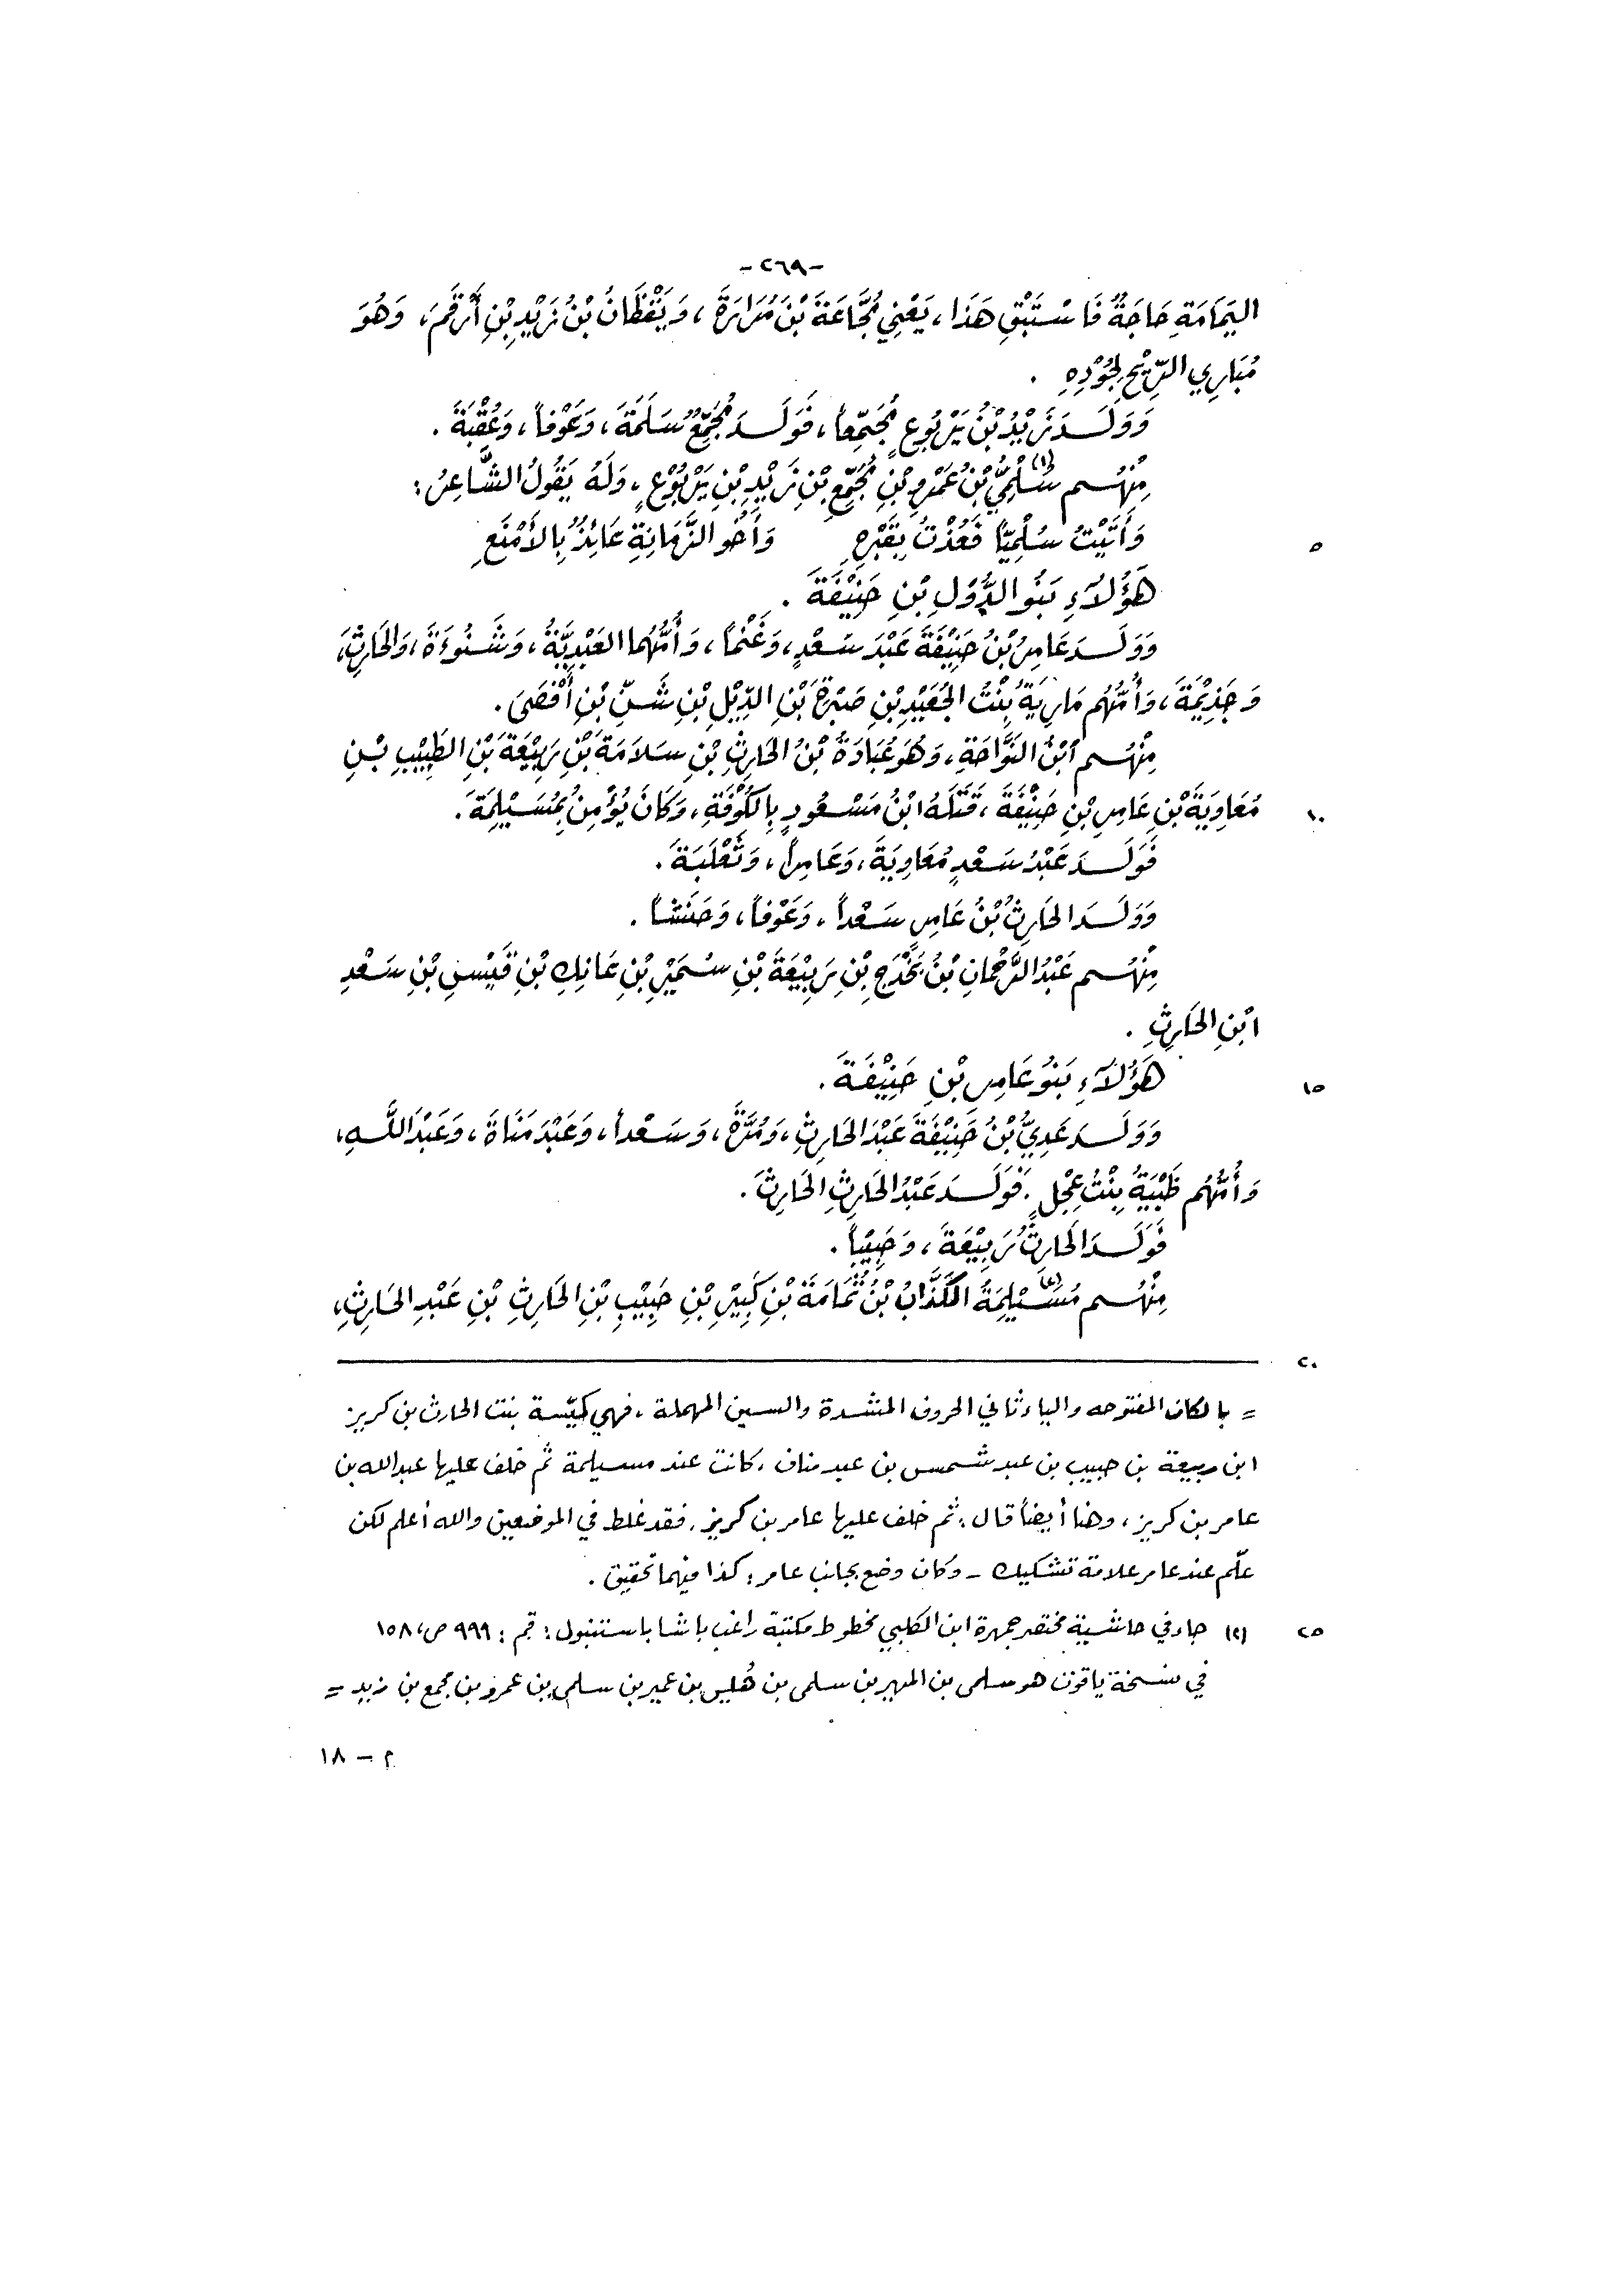 -٢٦٩-
اليَمَامَةِ حَاجَةٌ فَاسْتَبْقِ هَذَا، يَعْنِي مُجَّاعَةَ بْنَ مُرَارَةَ، وَيَقْظَانُ بْنُ زَيْدِ بْنِ أَرْقَمَ، وَهُوَ
مُبَارِي الرِّيْحِ لِجُوْدِهِ .
وَوَلَدَ زَيْدُ بْنُ يَرْبُوعٍ مُجَمِّعاً، فَوَلَدَ مُجَمِّعٌ سَلَمَةَ، وَعَوْفاً، وَعُقْبَةَ .
مِنْهُم سُلْمِيُّ(١) بْنُ عَمْرِو بْنِ مُجَمِّعِ بْنِ زَيْدِ بْنِ يَرْبُوْعٍ، وَلَهُ يَقُولُ الشَّاعِرُ :
وَأَتَيْتُ سُلْمِيّاً فَعُذْتُ بِقَبْرِهِ وَأَخُو الزَّمَانَةِ عَائِذٌ بِالأَمْنَعِ ٥
هَؤُلَاَءِ بَنُو الدُّوْلِ بْنِ حَنِيْفَةَ .
وَوَلَدَ عَامِرُ بْنُ حَنِيْفَةَ عَبْدَ سَعْدٍ، وَغَنْماً، وَأُمُّهُما العَبْدِيَّةُ، وَشَنُوءَةَ، وَالحَارِثَ،
وَجَذِيْمَةَ، وَأُمُّهُم مَارِيَةُ بِنْتُ الجُعَيْدِ بْنِ صَبْرَةَ بْنِ الدِّيْلِ بْنِ شَنِّ بْنِ أَفْصَى .
مِنْهُم ابْنُ النَّوَّاحَةِ، وَهُوَ عُبَادَةُ بْنُ الحَارِثِ بْنِ سَلَامَةَ بْنِ رَبِيْعَةَ بْنِ الطَّبِيْبِ بْنِ
مُعَاوِيَةَ بْنِ عَامِرِ بْنِ حَنِيْفَةَ، قَتَلَهُ ابْنُ مَسْعُودٍ بِالكُوْفَةِ، وَكَانَ يُؤْمِنُ بِمُسَيْلِمَةَ . ١٠
فَوَلَدَ عَبْدُ سَعْدٍ مُعَاوِيَةَ، وَعَامِراً، وَثَعْلَبَةَ .
وَوَلَدَ الحَارِثُ بْنُ عَامِرٍ سَعْداً، وَعَوْفاً، وَحَنَشاً .
مِنْهُم عَبْدُ الرَّحْمَانِ بْنُ بَحْدَجِ بْنِ رَبِيْعَةَ بْنِ سُمَيْرِ بْنِ عَاتِكِ بْنِ قَيْسِ بْنِ سَعْدِ
ابْنِ الحَارِثِ .
هَؤُلَاَءِ بَنُو عَامِرِ بْنِ حَنِيْفَةَ . ١٥
وَوَلَدَ عَدِيُّ بْنُ حَنِيْفَةَ عَبْدَ الحَارِثِ، وَمُرَّةَ، وَسَعْداً، وَعَبْدَ مَنَاةَ، وَعَبْدَ اللَّهِ،
وَأُمُّهُم ظَبْيَةُ بِنْتُ عِجْلٍ . فَوَلَدَ عَبْدُ الحَارِثِ الحَارِثَ .
فَوَلَدَ الحَارِثُ رَبِيْعَةَ، وَحَبِيْباً .
مِنْهُم مُسَيْلِمَةُ(٢) الكَذَّابُ بْنُ ثُمَامَةَ بْنِ كَبِيْرِ بْنِ حَبِيْبِ بْنِ الحَارِثِ بْنِ عَبْدِ الحَارِثِ،
٢٠
= بالكاف المفتوحه والياء ثاني الحروف المشددة والسين المهملة، فهي كيّسة بنت الحارث بن كريز
ابن ربيعة بن حبيب بن عبد شمس بن عبد مناف، كانت عند مسيلمة ثم خلف عليها عبدالله بن
عامر بن كريز، وهنا أيضاً قال : ثم خلف عليها عامر بن كريز، فقد غلط في الموضعين والله أعلم لكن
علّم عند عامر علامة تشكيك - وكان وضع بجانب عامر : كذا فيهما تحقيق .
(٢) جاء في حاشية مختصر جمهرة ابن الكلبي مخطوط مكتبة راغب باشا باستنبول : رقم : ٩٩٩ ص، ١٥٨ ٢٥
في نسخة ياقوت هو سلمى بن المهير بن سلمى بن هُليس بن عمير بن سلمى بن عمرو بن مجمع بن زيد =
م - ١٨